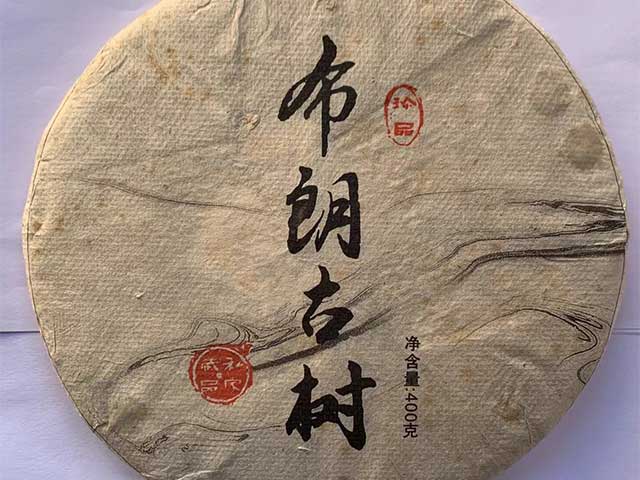 布朗古树
珍品
净含量:400克
私家藏品